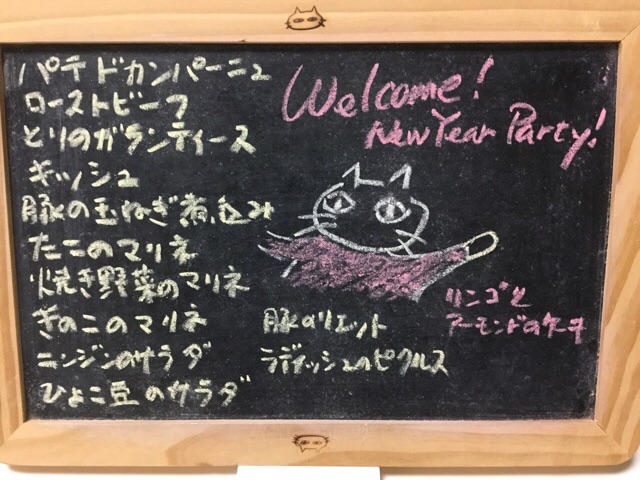 パテドカンパーニュ
ローストビーフ
とりのガランティーヌ
キッシュ
豚の玉ねぎ煮込み
たこのマリネ
焼き野菜のマリネ
きのこのマリネ
ニンジンのサラダ
ひよこ豆のサラダ
Welcome!
New Year Party!
豚のリエット
ラディッシュのピクルス
リンゴと
アーモンドのケーキ